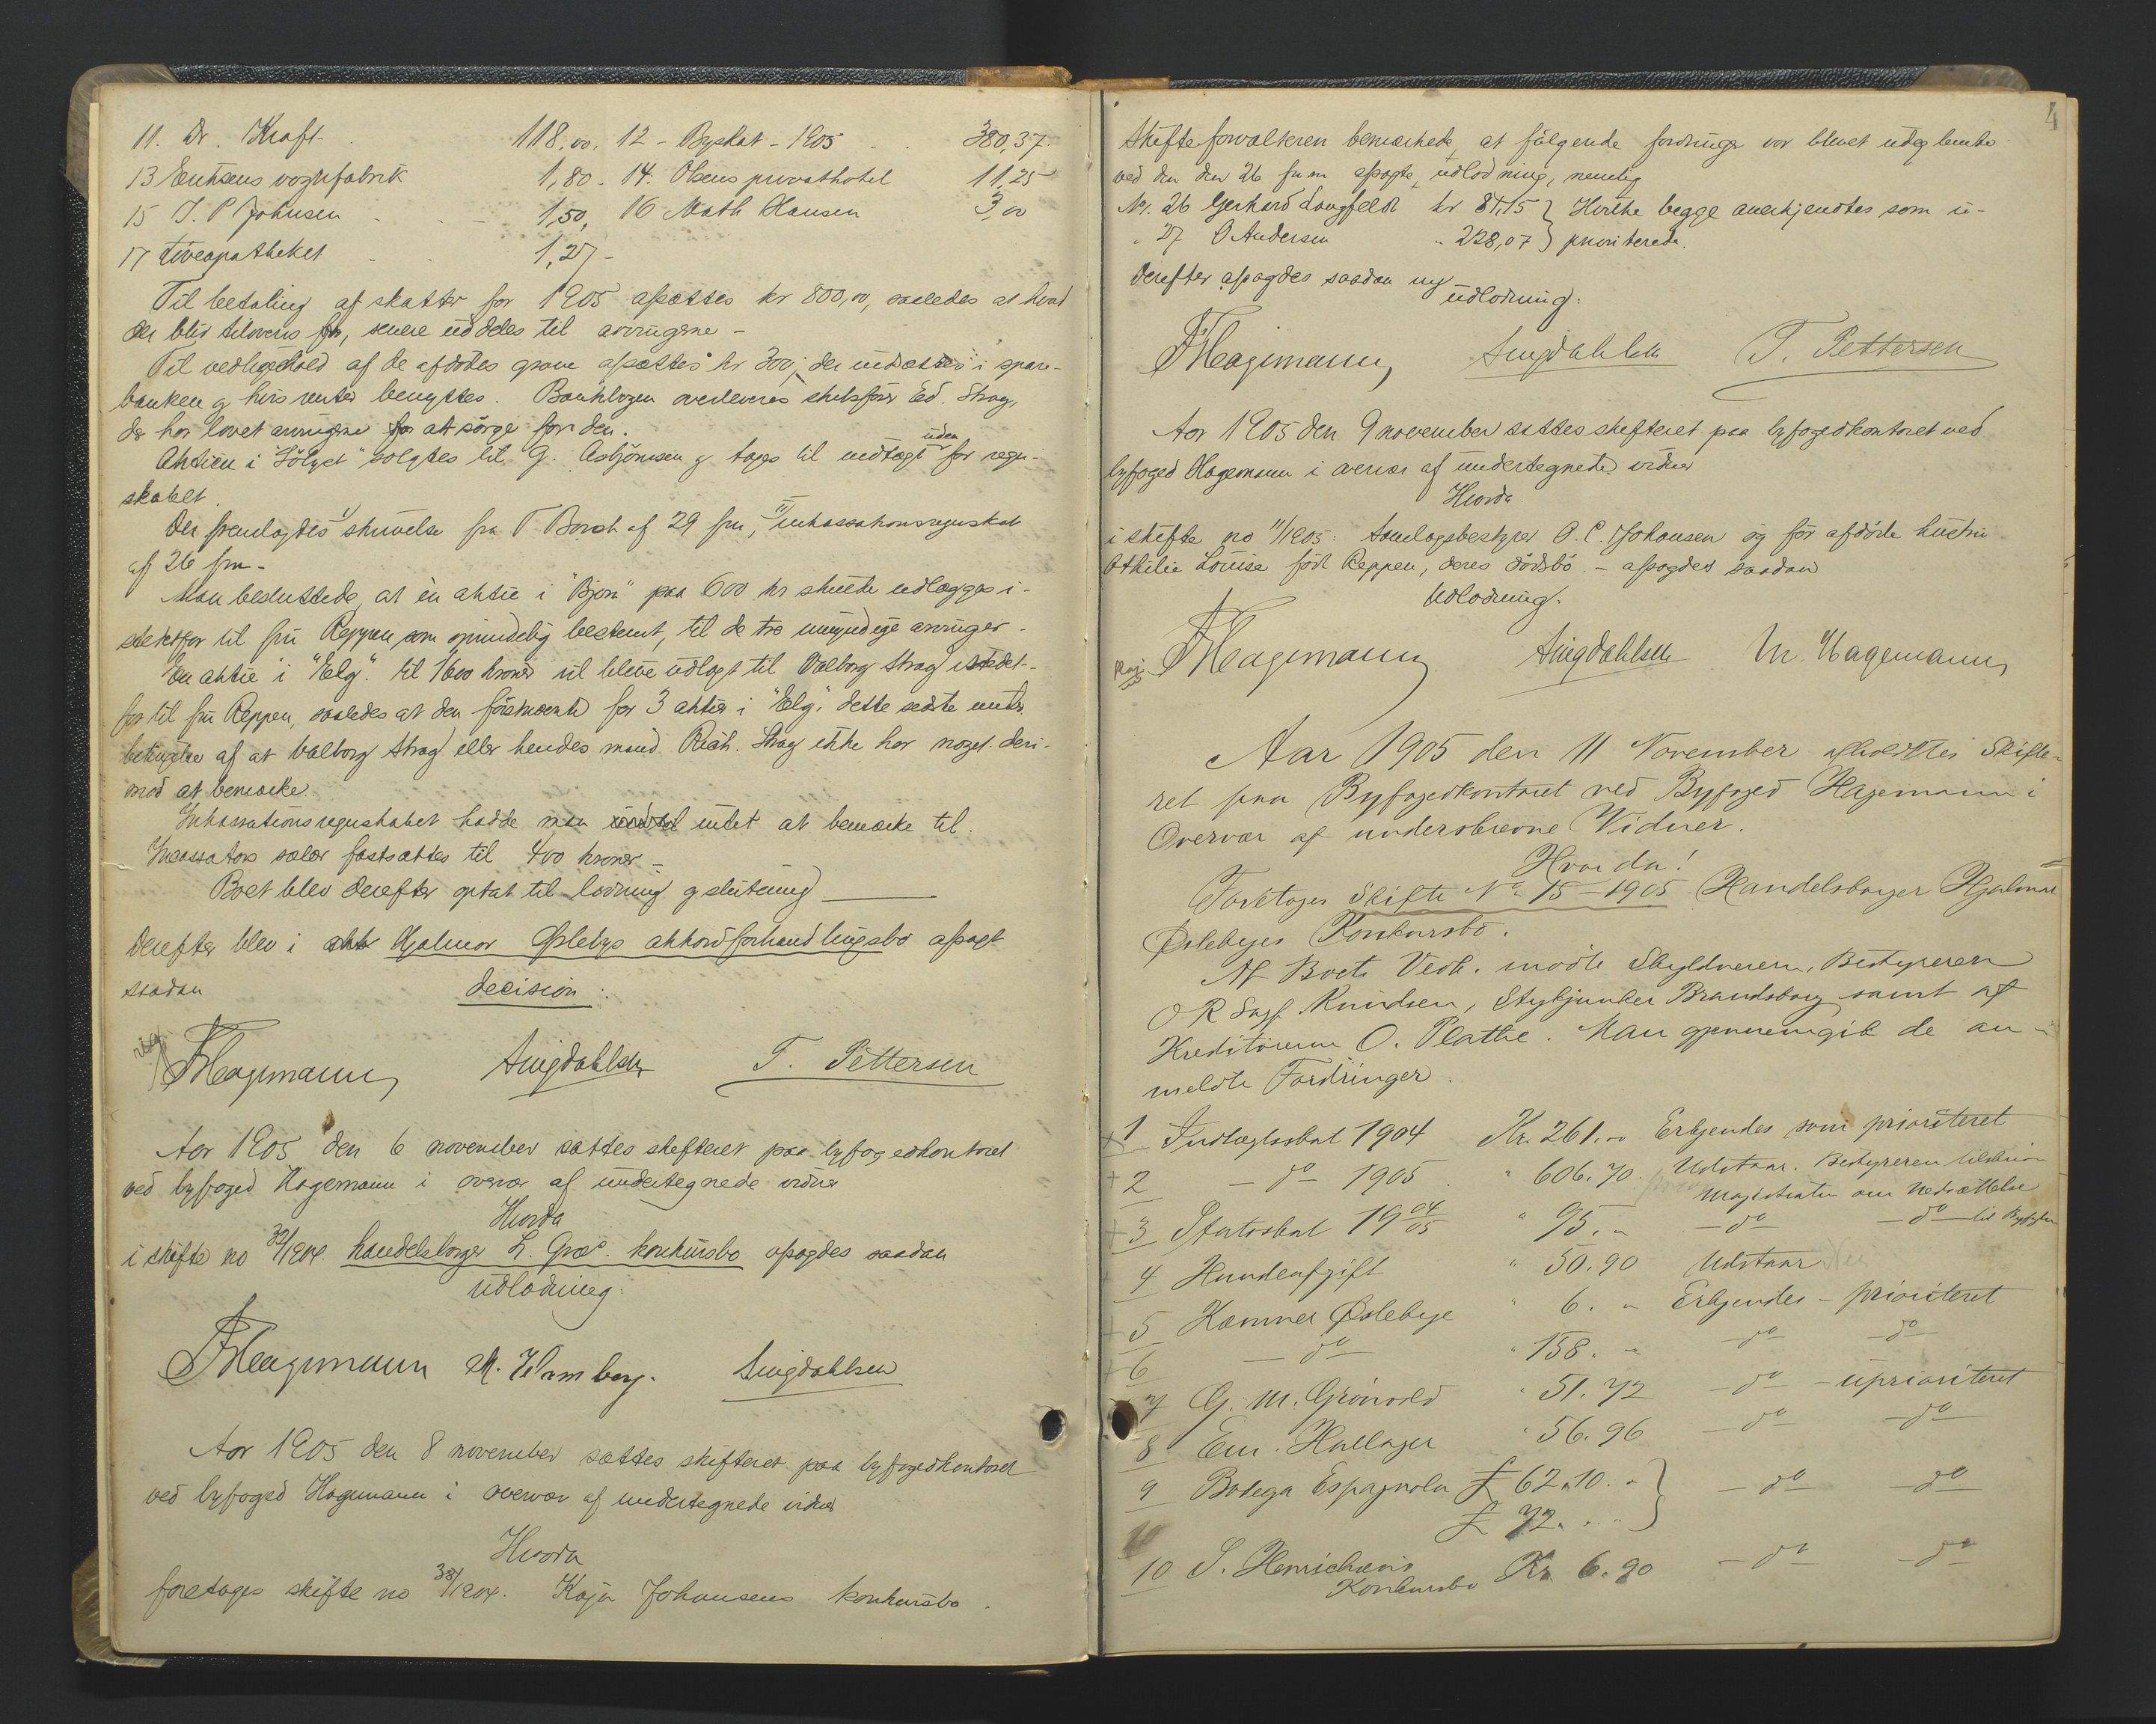 11. Dr. Kraft 118,00. 12 - Byskat - 1905 380,37
13 Eriksens vognfabrik 1,80. 14. Olsens privathotel 11,25
15 J. P Johnsen 1,50, 16 Math Hansen 3,00
17 Løveapotheket 1,27 -
Til betaling af skatter for 1905 afsættes kr 800,00, saaledes at hvad
der bliv tilovers senere uddeles til arvingerne -
Til vedligehold af de afdødes grave afsættes kr 300, der indsættes i spare-
banken og hvis renter benyttes. Bankbogen overleveres skibsfører Ed. Strag,
der har lovet arvingerne at sørge for den.
Aktien i "Sölyst" solgtes til G. Asbjörnsen og toges til indtægt uden for regn-
skabet.
Der fremlagdes skrivelse fra T. Borch af 29 fm, inkassationsregnskab
af 26 fm -
Man besluttede, at en aktie i "Bjørn" paa 600 kr skulde udlægges i-
stedetfor til fru Reppen, som oprindelig bestemt, til de tre umyndige arvinger.
En aktie i "Elg" til 1600 kroner vil blive udlagt til Valborg Strag istedet-
for til fru Reppen, saaledes at den förstnævnte for 3 aktier i "Elg", dette sidste under
betingelse af at Valborg Strag eller hendes mand Rich. Strag ikke har noget deri-
mod at bemærke.
Inkassationsregnskabet hadde man intet at bemærke til.
Incassators salær fastsattes til 400 kroner -
Boet blev derefter optat til lodning og slutning
Derefter blev i Hjalmar Oslebys akkordforhandlingsbo afsagt
saadan decision:
FHagemann Amgdahlsen T. Pettersen
Aar 1905 den 6 november sattes skifteret paa byfogedkontoret
ved byfoged Hagemann i overvær af undertegnede vidner
Hvorda
i skifte no 32/1904. handelsborger L. Græs. konkursbo afsagdes saadan
udlodning.
FHagemann M. Hamberg. Amgdahlsen
Aar 1905 den 8 november sattes skifteret paa byfogedkontoret
ved byfoged Hagemann i overvær af undertegnede vidner
Hvorda
foretoges skifte no 38/1904. Kaja Johansens konkursbo.
4
Skifteforvalteren bemærkede, at følgende fordringer var blevet udeglemte
ved den den 26 f.m. afsagte udlodning, nemlig
No. 26 Gerhard Langfeldt kr 87,15 } Hvilke begge anerkjendtes som u-
" 27 O Andersen " 228,07 } prioriterede.
Derefter afsagdes saadan ny
udlodning:
FHagemann Amgdahlsen T. Pettersen
Aar 1905 den 9 november sattes skifteret paa byfogedkontoret ved
byfoged Hagemann i overvær af undertegnede vidner
Hvorda
i skifte no 11/1905: samlagsbestyrer O. C. Johansen og før afdøde hustru
Othilie Louise født Reppen, deres dødsbo - afsagdes saadan
Udlodning.
FHagemann Amgdahlsen M. Hagemann
Aar 1905 den 11 November afholdtes Skifte-
ret paa Byfogedkontoret ved Byfoged Hagemann i
Overvær af underskrevne Vidner.
Hvorda!
Foretoges Skifte No 15 - 1905 Handelsborger Hjalmar
Øslebyes Konkursbo.
Af Boets Vedk. mødte Skyldneren, Bestyreren
O R Sagf. Knudsen, Stykjunker Brandsborg samt af
Kreditorerne O. Plathe. Man gjennemgik de an-
meldte Fordringer.
1 Indtægtsskat 1904 Kr. 261. " Erkjendes som prioriteret
2 - do 1905 " 606.70 Udstaar. Bestyreren tilskriver
Magistraten om Nedsættelse
3 Statsskat 1904/05 " 95. " - do - - do - til Byfogden
4 Hundeafgift " 50.90 Udstaar
5 Kamma Øslebye " 6. " Erkjendes - prioriteret
6 - do - " 158. " - do - - do -
7 G. M. Grönvold " 51.72 - do - - uprioriteret
8 Em. Hallager " 56.96 - do - - do -
9 Bodega Espagnola £ 62.10. " } - do - - do -
£ 72. " . " }
10 S. Henrichsens
Konkursbo Kr. 6.90 - do - - do -